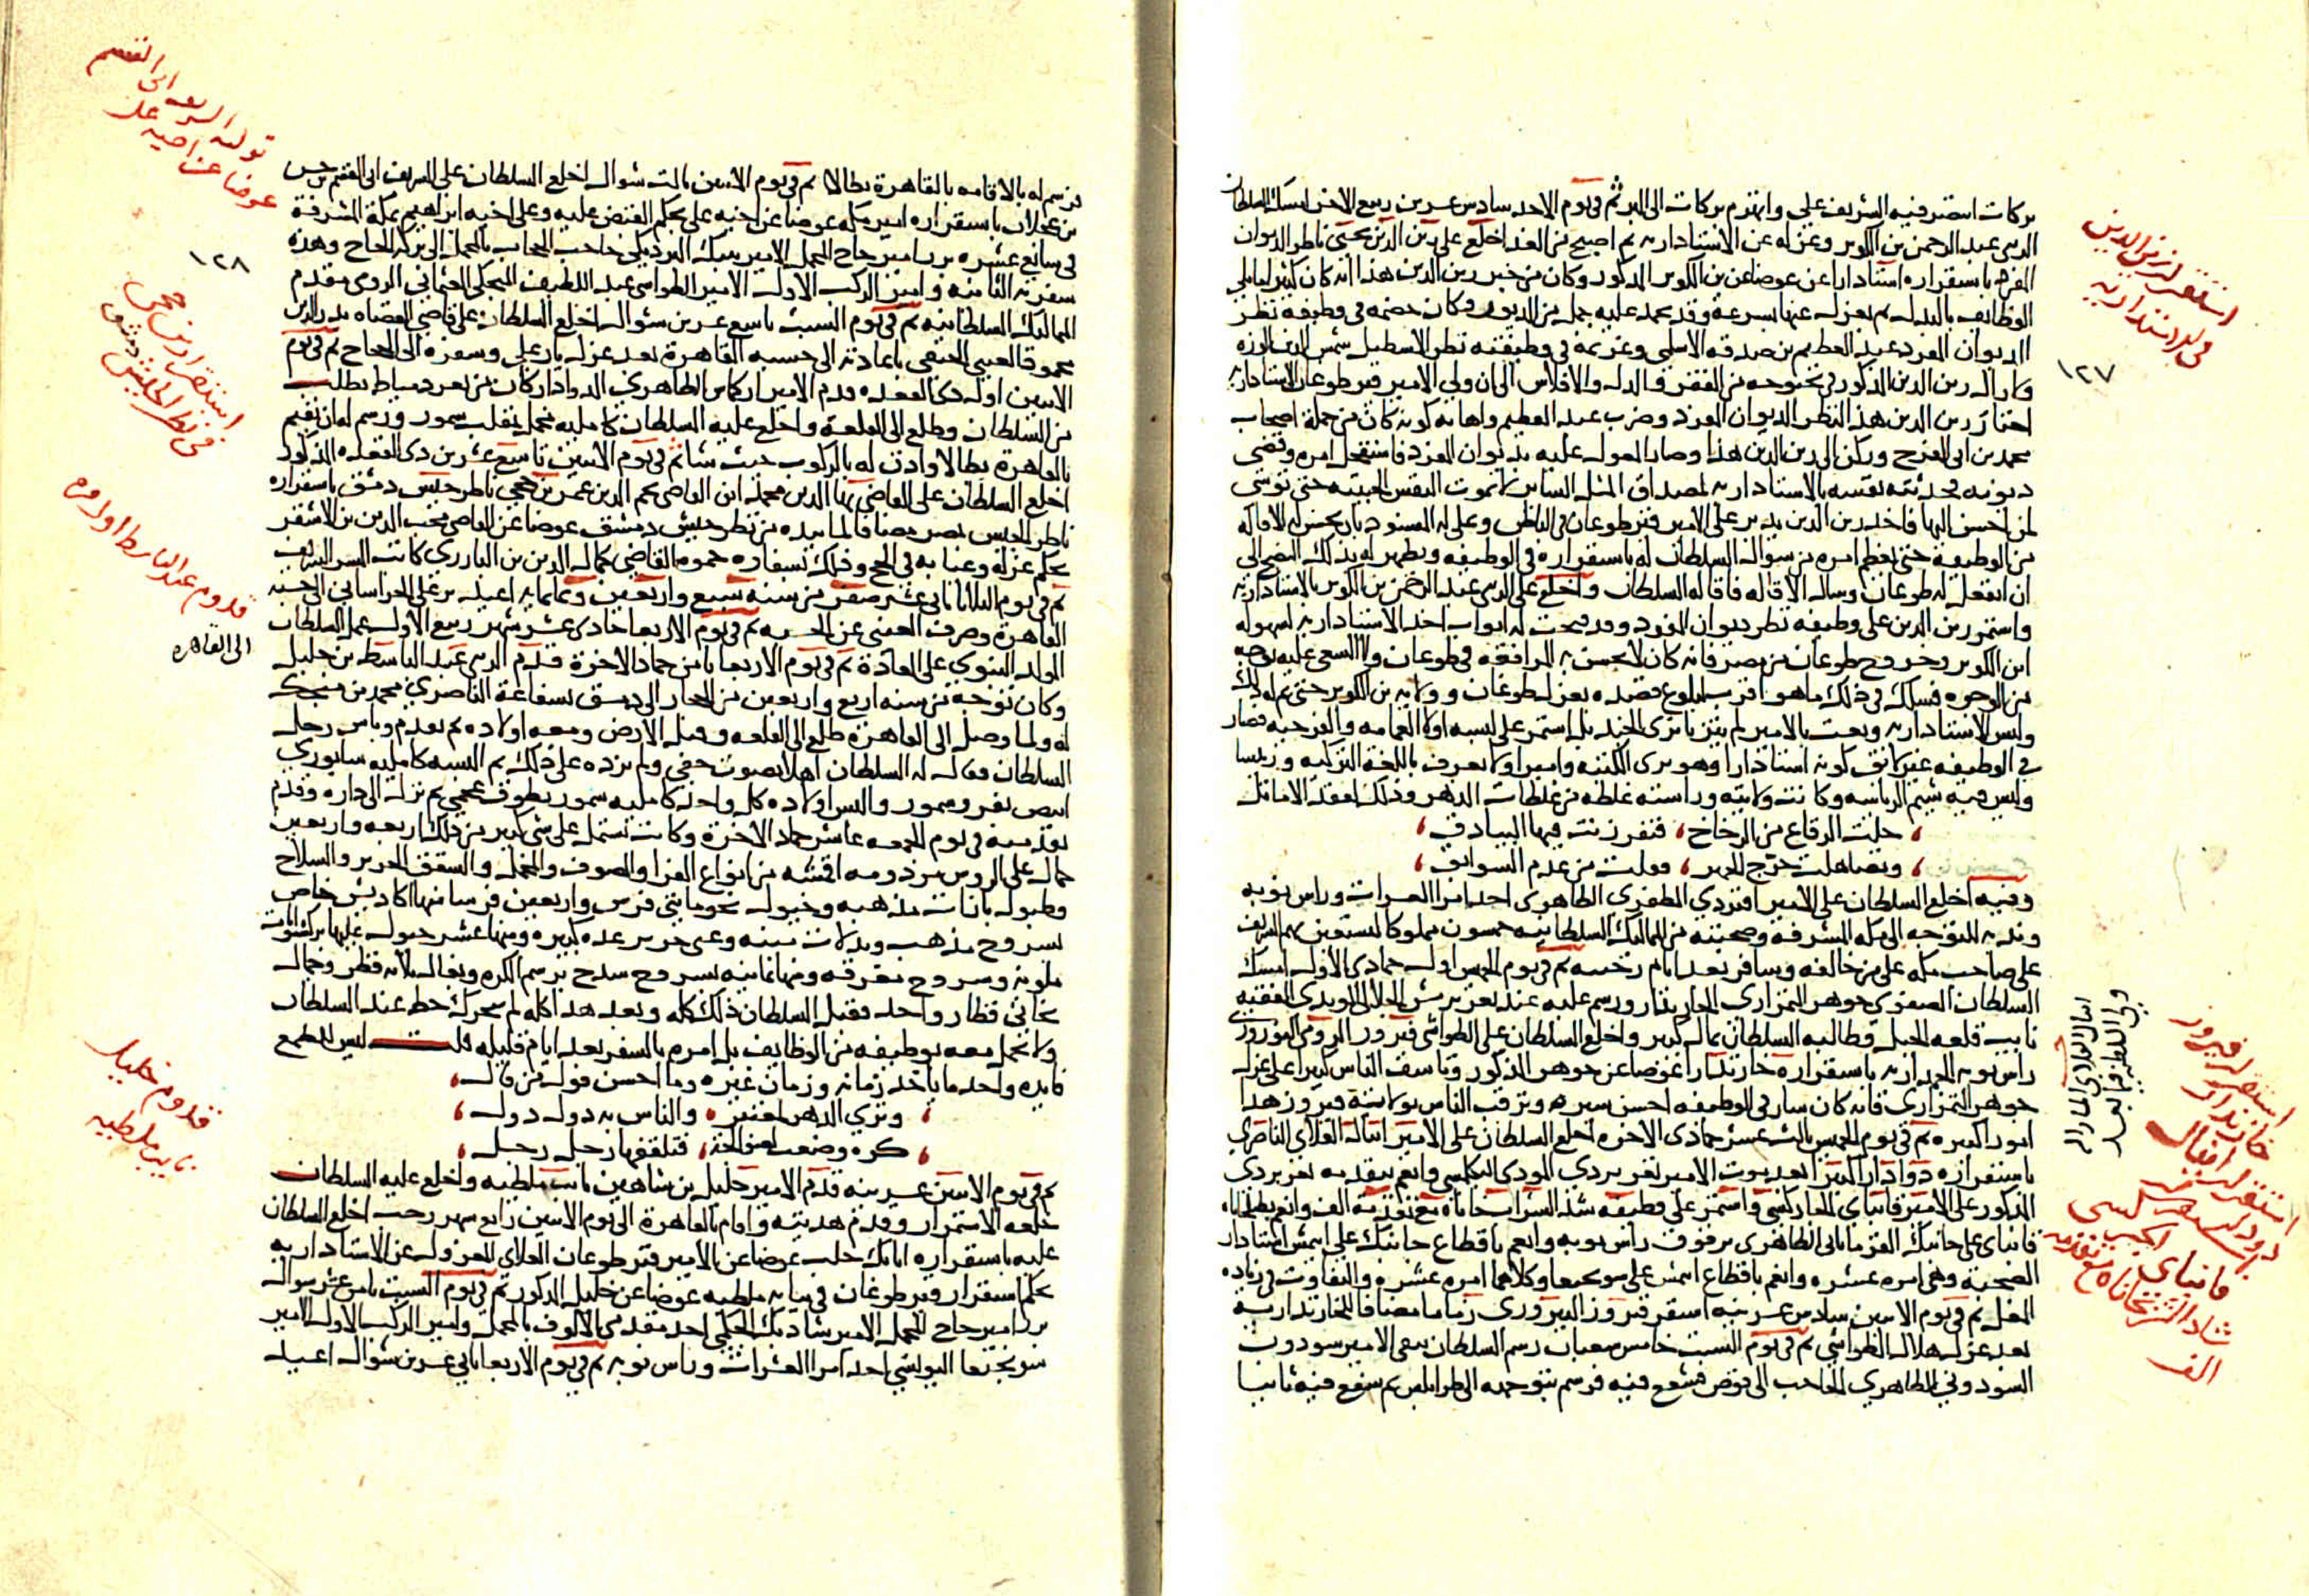 بركات انتصر فيه الشريف علي وانهزم بركات الى البر ثم في يوم الاحد سادس عشرين ربيع الاخر امسك السلطان
الزيني عبد الرحمن بن الكويز وعزله عن الاستادارية ثم اصبح من الغد اخلع على زين الدين يحيى ناظر الديوان
المفرد باستقراره استادارا عن عوضا عن بن الكويز المذكور وكان من خبر زين الدين هذا انه كان كثيرا ما يلي
الوظائف بالبدل ثم يعزل عنها بسرعة وقد تجمد عليه جمل من الديون وكان خصمه في وظيفة نظر
الديوان المفرد عبد العظيم بن صدقه الاسلمي وغريمه في وظيفته نظر الاسطبل شمس الدين الوزه
وكان زين الدين المذكور في بحبوحه من الفقر والذل والافلاس الى ان ولي الامير قيز طوغان الاستادارية
اختار زين الدين هذا لنظر الديوان المفرد وضرب عبد العظيم واهانه كونه كان من جملة اصحاب
محمد بن ابي الفرج وركن الى زين الدين هذا وصار المعول عليه بديوان المفرد فاستفحل امره وقضى
ديونه فحدثته نفسه بالاستادارية لمصداق المثل السائر لا تموت النفس الخبيثه حتى تسيء
لمن احسن اليها فاخذ زين الدين يدبر على الامير قيز طوغان في الباطن
من الوظيفة حتى يعظم امره من سوال السلطان له باستقراره في الوظيفه ويظهر له بذلك النصح الى
ان انفعل له طوغان وسال الاقاله فاقاله السلطان واخلع على الزيني عبد الرحمن بن الكويز بالاستادارية
واستمر زين الدين على وظيفه نظر ديوان المفرد وقد فتحت له ابواب اخذ الاستادارية لسهولة
ابن الكويز وخروج طوغان من مصر فانه كان لا يحسن به المرافعه في طوغان ولا السعي عليه بوجه
من الوجوه فسلك في ذلك ما هو اقرب لبلوغ قصده بعزل طوغان وولاية بن الكويز حتى تم له ذلك
ولبس الاستادارية ونعت بالامير ولم يتزيا بزي الجند بل استمر على لبسه اولا العمامه والفرجيه فصار
في الوظيفه غير لائق كونه استادارا وهو بزي الكتبه واميرا ولا يعرف باللغة التركيه ورئيسا
وليس فيه شيم الرياسه وكانت ولايته ورياسته غلطه من غلطات الدهر وذلك لفقد الاماثل
، خلت الرقاع من الرخاخ ، فتفرزنت فيها البيادق ،
، وتصاهلت عرج الحمير ، وقلت من عدم السوابق ،
وفيه اخلع السلطان على الامير اقبردي المظفري الظاهري احد امرا العشرات وراس نوبه
وندبه للتوجه الى مكه المشرفة وصحبته من المماليك السلطانية خمسون مملوكا ليستعين بهم الشريف
على صاحب مكه على من خالفه وسافر بعد ايام رخيه ثم في يوم الخميس اول جمادى الاول امسك
السلطان الصفوي جوهر التمرازي الخازندار ورسم عليه عند تغري برمش الجلالي المويدي الفقيه
نايب قلعه الجبل وطالبه السلطان بمال كثير واخلع السلطان على الطواشي فيروز الرومي النوروزي
راس نوبه الجمدارية باستقراره خازندارا عوضا عن جوهر المذكور وتاسف الناس كثيرا على عزل
جوهر التمرازي فانه كان سار في الوظيفه احسن سيره وترقب الناس بولاية فيروز هذا
امور كثيره ثم في يوم الخميس ثالث عشر جمادى الاخره اخلع السلطان على الامير اينال العلاي الناصري
باستقراره دوادارا كبيرا بعد موت الامير تغري بردي المودي البكلمشي وانعم بتقدمه تغري بردي
المذكور على الامير قانباي الجاركسي واستمر على وظيفه شد الشراب خاناه مع تقدمة الف وانعم بطبلخاناه
قانباي على جانبك القرماني الظاهري برقوق راس نوبه وانعم باقطاع جانبك على ايتمش استادار
الصحبة وهي امره عشره وانعم باقطاع ايتمش على سونجبغا وكلاهما امره عشره والتفاوت في زياده
المغل ثم في يوم الاثنين سادس عشرينه استقر فيروز النوروزي زماما مضافا للخازندارية
بعد عزل هلال الطواشي ثم في يوم السبت خامس شعبان رسم السلطان بنفي الامير سودون
السودوني الظاهري الحاجب الى قوص فشفع فيه فرسم بتوجهه الى طرابلس ثم شفع فيه ثانيا
استقرار زين الدين
في الاستدارية
١٢٧
استقرار فيروز
خازندار
استقرار اينال
دوادار
قانباي الجركسي
شاد الشربخاناه مع تقدمة
الف
فرسم له بالاقامه بالقاهرة بطالا ثم في يوم الاثنين ثالث شوال اخلع السلطان على الشريف ابي القسم بن حسن
بن عجلان باستقراره امير مكه عوضا عن اخيه علي بحكم القبض عليه وعلى اخيه ابراهيم بمكة المشرفة
في سابع عشره برز امير حاج المحمل الامير تنبك البردبكي حاجب الحجاب بالمحمل الى بركه الحاج وهذه
سفرته الثانيه وامير الركب الاول الامير الطواشي عبد اللطيف المنجكي العثماني الرومي مقدم
المماليك السلطانيه ثم في يوم السبت تاسع عشرين شوال اخلع السلطان على قاضي القضاه بدر الدين
محمود العيني الحنفي باعادته الى حسبه القاهرة بعد عزل يار علي وسفره الى الحجاج ثم في يوم
الاثنين اول ذي القعده قدم الامير اركماس الظاهري الدوادار كان من ثغر دمياط بطلب
من السلطان وطلع الى القلعة واخلع عليه السلطان كامليه مخمل بمقلب سمور ورسم له ان يقيم
بالقاهرة بطالا واذن له بالركوب حيث شا ثم في يوم الاثنين تاسع عشرين ذي القعده المذكور
اخلع السلطان على القاضي بهاء الدين محمد ابن القاضي نجم الدين عمر بن حجي ناظر جيش دمشق باستقراره
ناظر الجيش بمصر مضافا لما بيده من نظر جيش دمشق عوضا عن القاضي محب الدين بن الاشقر
بحكم عزله وغيابه في الحج وذلك بسفارة حموه القاضي كمال الدين بن البارزي كاتب السر الشريف
ثم في يوم الثلاثا ثاني عشر صفر من سنه سبع واربعين وثمانمايه اعيد يار علي الخراساني الى حسبه
القاهرة وصرف العيني عن الحسبه ثم في يوم الاربعا حادي عشر شهر ربيع الاول عمل السلطان
المولد النبوي على العادة ثم في يوم الاربعا ثامن جماد الاخرة قدم الزيني عبد الباسط بن خليل
وكان توجه من سنه اربع واربعين من الحجاز الى دمشق بشفاعة الناصري محمد بن منجك
له ولما وصل الى القاهرة طلع الى القلعه وقبل الارض ومعه اولاده ثم تقدم وباس رجل
السلطان فقال له السلطان اهلا بصوت خفي ولم يزده على ذلك ثم البسه كامليه سابوري
ابيض بفرو سمور والبس اولاده كل واحد كامليه سمور بطوق عجمي ثم نزل الى داره وقدم
تقدمته في يوم الجمعه عاشر جماد الاخرة وكانت تشتمل على شي كثير من ذلك اربعه واربعين
حمال على الروس مزدومه اقمشه من انواع الفرا والصوف والمخمل والشقق الحرير والسلاح
وطبول بازات مذهبه وخيول نحو مايتي فرس واربعين فرسا منها اكاديش خاص
بسروج مذهب وبدلات مينه وعبي حرير عده كبيره ومنها عشر خيول عليها بركستوانات
ملونه وسروج مغرقه ومنها ثمانيه بسروج سذج برسم الكره وبغال ثلاثه قطر وجمال
بخاتي قطار واحد فقبل السلطان ذلك كله وبعد هذا كله لم يتحرك حظه عند السلطان
ولا تجمل معه بوظيفه من الوظايف بل امره بالسفر بعد ايام قليله قلت ليس للطمع
فايده واحد ما ياخذ زمانه وزمان غيره وما احسن قول من قال
، وترى الدهر لعبة ، والناس به دول دول ،
، كره وضعت لصوالجة ، فتلقفها رجل رجل ،
ثم في يوم الاثنين عشرينه قدم الامير خليل بن شاهين نايب ملطيه واخلع عليه السلطان
خلعه الاستمرار وقدم هديته واقام بالقاهرة الى يوم الاثنين رابع شهر رجب اخلع السلطان
عليه باستقراره اتابك حلب عوضا عن الامير قيز طوغان العلاي المعزول عن الاستادارية
بحكم استقرار قيز طوغان في نيابه ملطيه عوضا عن خليل المذكور ثم في يوم السبت ثامن عشر شوال
برز امير حاج المحمل الامير شادبك الجكمي احد مقدمي الالوف بالمحمل وامير الركب الاول الامير
سونجبغا اليونسي احد امرا العشرات وراس نوبه ثم في يوم الاربعا ثاني عشرين شوال اعيد
تولية الشريف ابي القسم
عوضا عن اخيه علي
١٢٨
استقرار بن حجي
في نظر الجيش دمشق
قدوم عبد الباسط
الى القاهره
قدوم خليل
نايب ملطيه